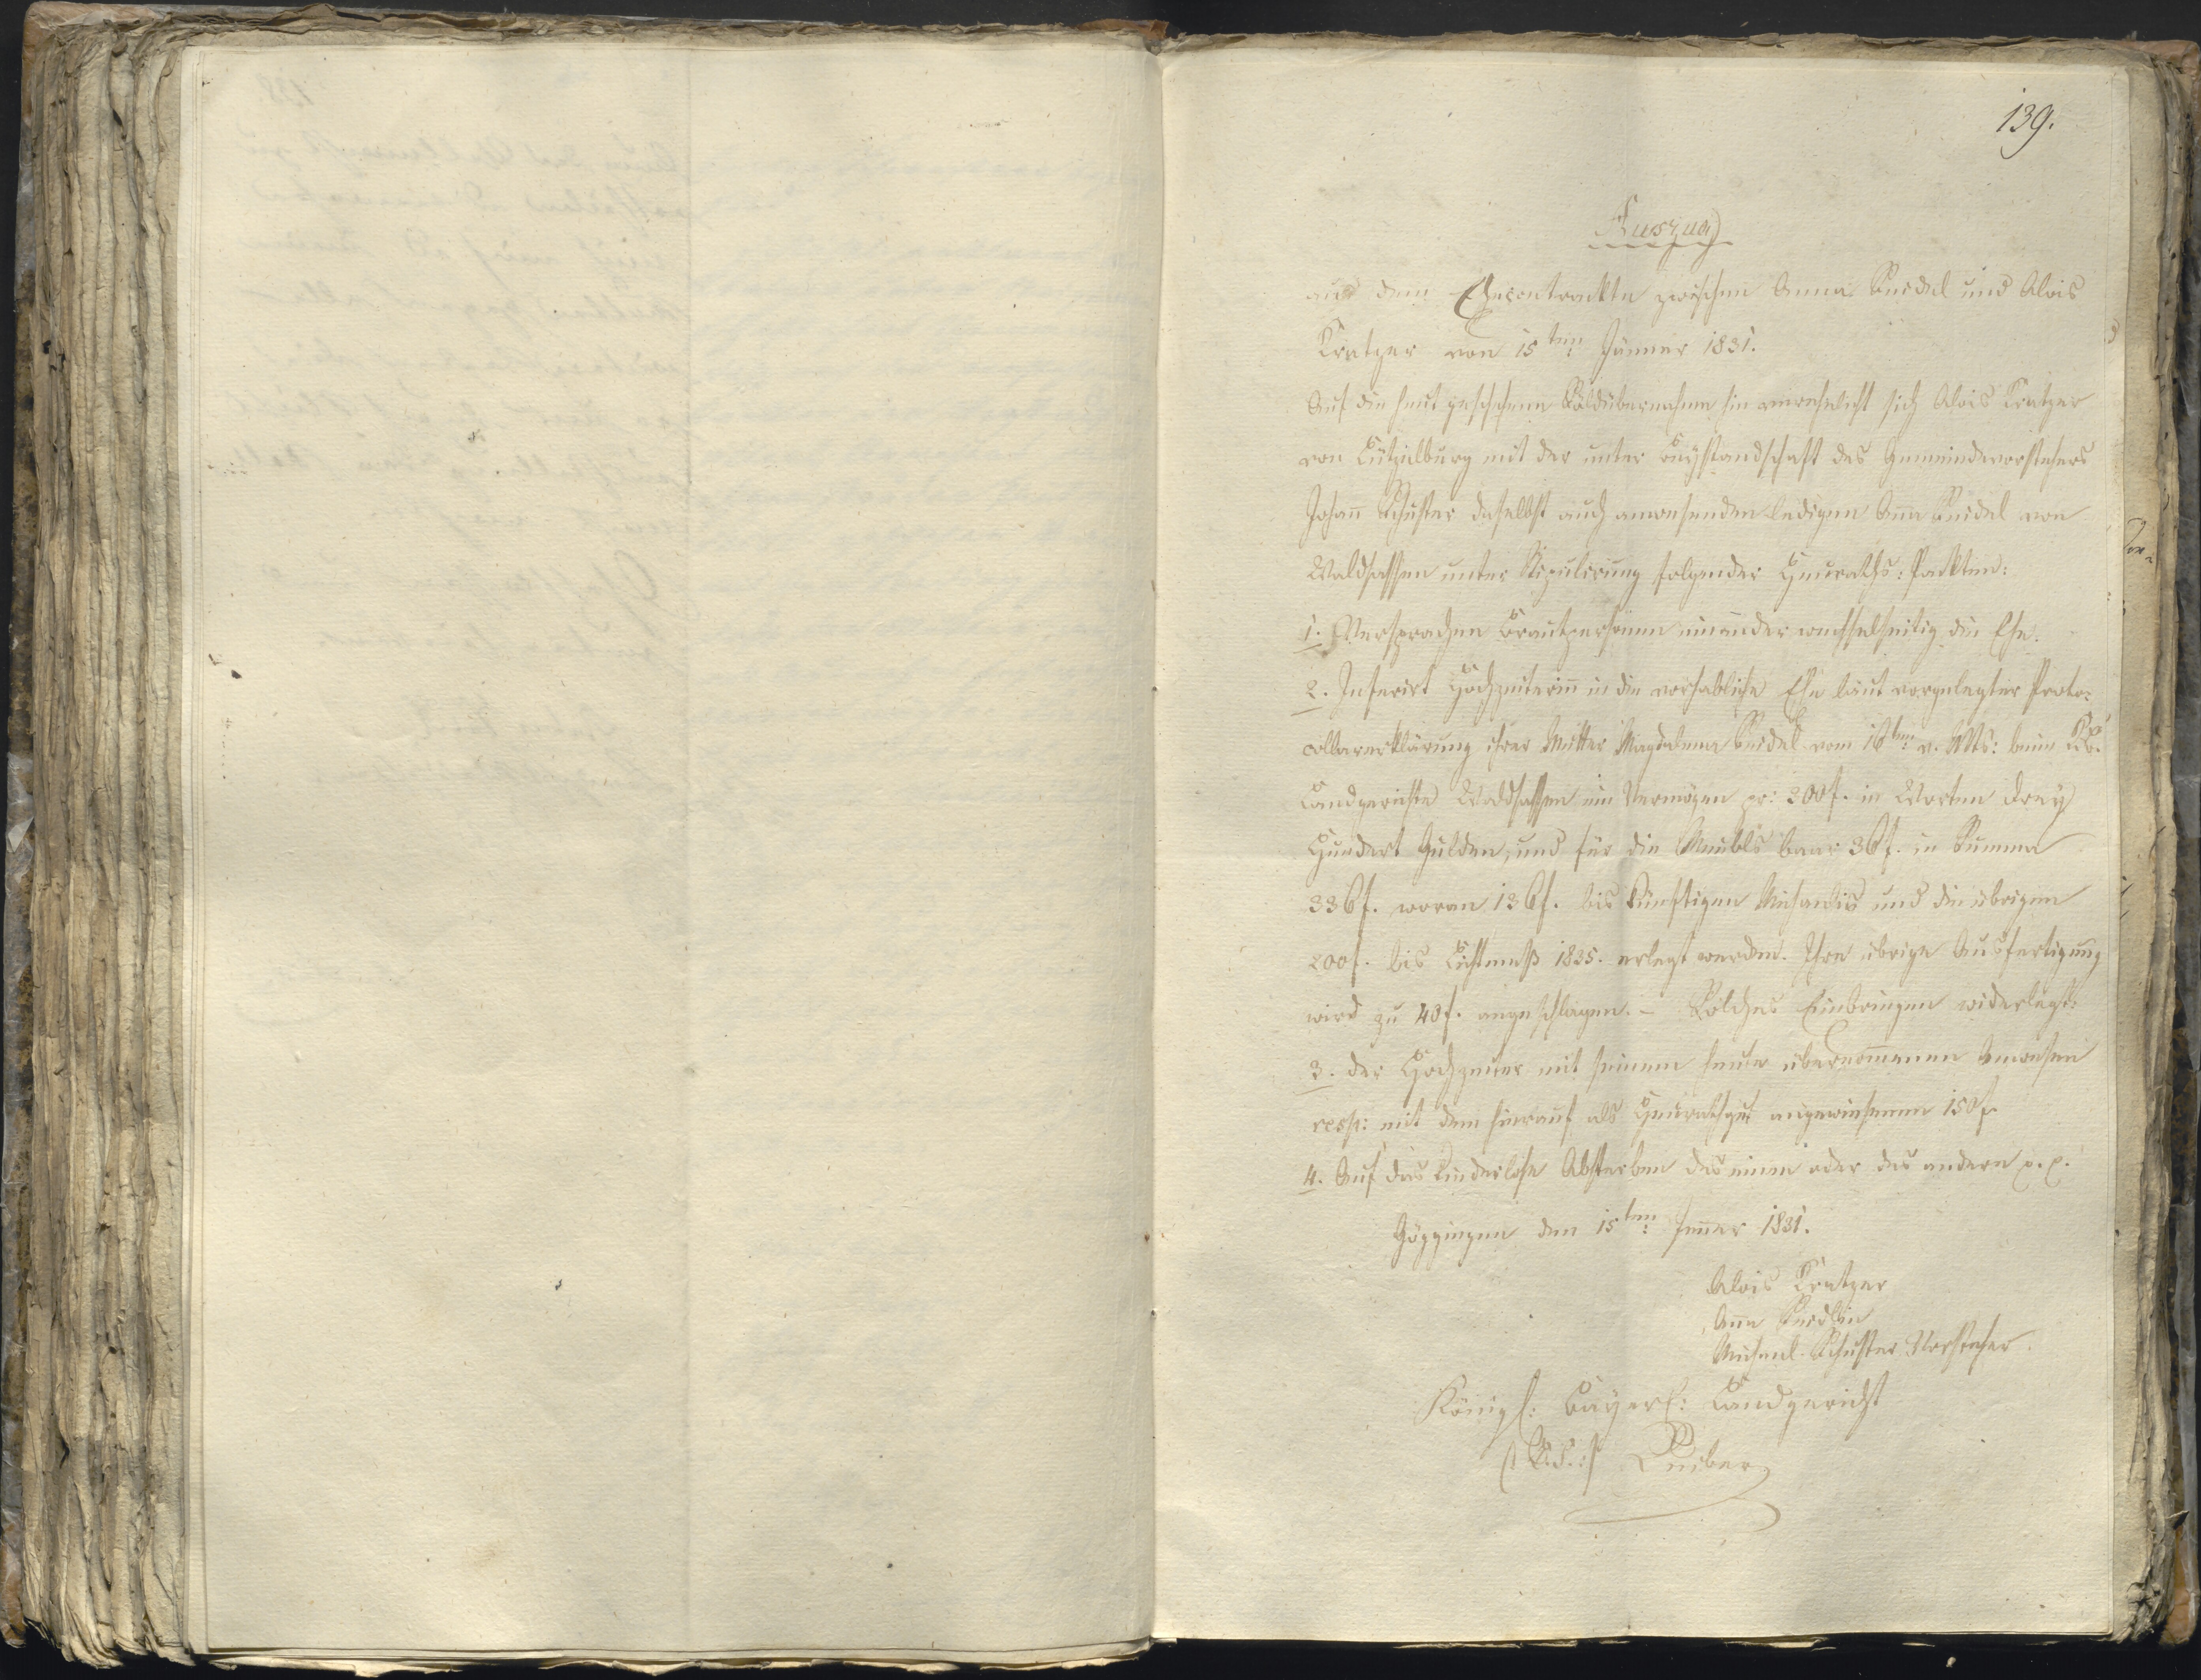 139.
Auszug
aus dem Ehecontrackte zwischen Anna Seidel und Alois
Kratzer vom 15ten: Jänner 1831.
Auf die heut geschehene Söldübernahme hin verehelicht sich Alois Kratzer
von Lützelburg mit der unter Beystandschaft des Gemeindevorstehers
Johañ Schuster daselbst auch anwesenden ledigen Aña Seidel von
Waldsassen unter Stipulirung folgender Heuraths: Packten:
1. Versprachen Brautpersonen einander wechselseitig die Ehe.
2. Inferirt Hochzeiteriñ in die vorhabliche Ehe laut vorgelegter Proto=
collarerklärung ihrer Mutter Magdalena Seidel vom 16ten: v. Mts: beim
Landgerichte Waldsassen ein Vermögen pr: 300 f. in Worten drey
Hundert Gulden, und für die Meubls baar 36 f. in Summa
336 f. woran 136 f. bis künftigen Michaelis und die übrigen
200 f. bis Lichtmeß 1835. erlegt werden. Ihre übrige Ausfertigung
wird zu 40 f. angeschlagen. – Solches Einbringen widerlegt:
3. der Hochzeiter mit seinem heute übernom̄enen Anwesen
resp: mit dem hierauf als Heurathgut angewiesenen 150 f.
4. Auf das kinderlose Absterben des einen oder des andern p. p.
Göggingen den 15ten: Jeñer 1831.
Alois Kratzer
Aña Seidlin
Michael Schuster Vorsteher.
Königl: Bayerl: Landgericht
(L. S.)